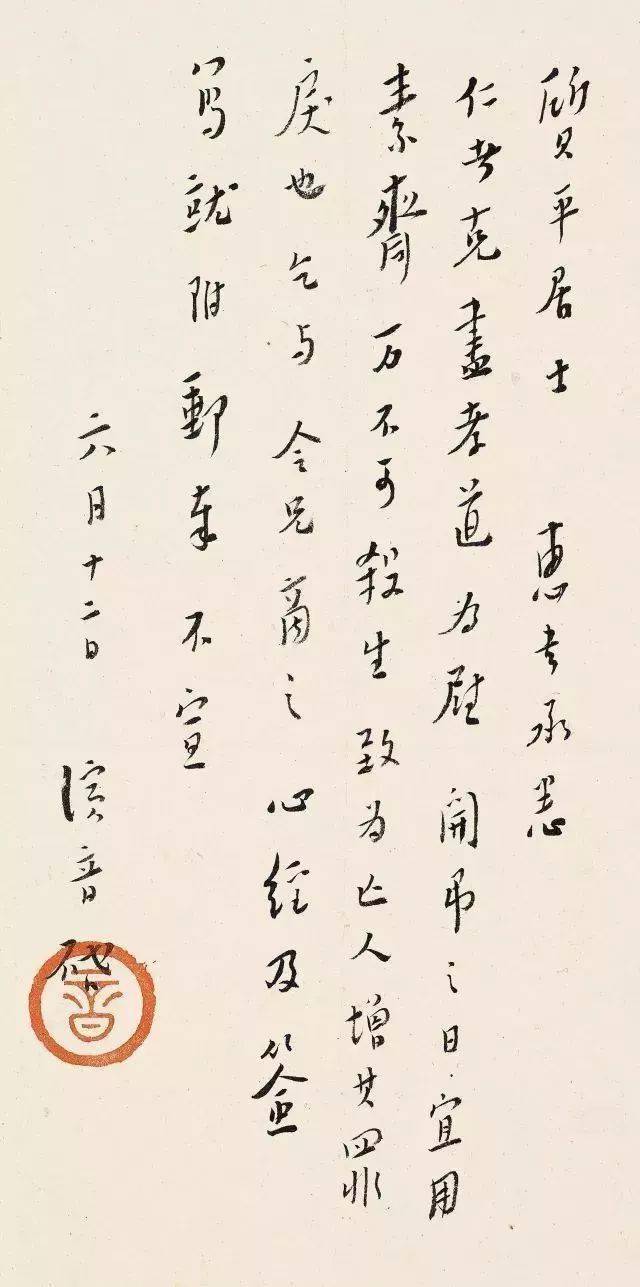 質平居士 惠書承悉
仁者克盡孝道为慰 開弔之日宜用
素齋万不可殺生致为亡人增其罪
戾也乞与 令兄商之心經及簽
寫就附郵奉不宣
六月十二日 演音啓